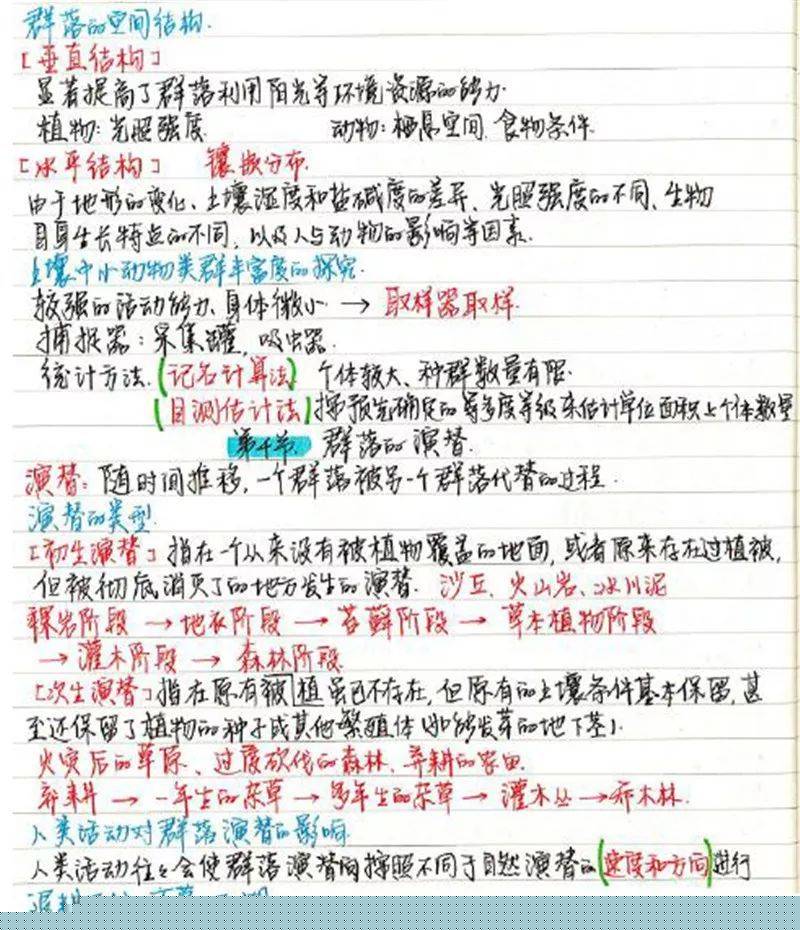 群落的空间结构.
[垂直结构]
显著提高了群落利用阳光等环境资源的能力.
植物:光照强度. 动物:栖息空间、食物条件.
[水平结构] 镶嵌分布.
由于地形的变化、土壤湿度和盐碱度的差异、光照强度的不同、生物
自身生长特点的不同,以及人与动物的影响等因素.
土壤中小动物类群丰富度的探究.
较强的活动能力、身体微小 → 取样器取样.
捕捉器:采集罐,吸虫器.
统计方法.(记名计算法) 个体较大、种群数量有限.
(目测估计法)按预先确定的等多度等级来估计单位面积上个体数量
第4节. 群落的演替.
演替:随时间推移,一个群落被另一个群落代替的过程.
演替的类型
[初生演替]指在一个从来没有被植物覆盖的地面,或者原来存在过植被,
但被彻底消灭了的地方发生的演替. 沙丘、火山岩、冰川泥
裸岩阶段 → 地衣阶段 → 苔藓阶段 → 草本植物阶段
→ 灌木阶段 → 森林阶段
[次生演替]指在原有被植虽已不存在,但原有的土壤条件基本保留,甚
至还保留了植物的种子或其他繁殖体(如能发芽的地下茎).
火灾后的草原、过度砍伐的森林、弃耕的农田.
弃耕 → 一年生的杂草 → 多年生的杂草 → 灌木丛 → 乔木林.
人类活动对群落演替的影响.
人类活动往往会使群落演替按照不同于自然演替的(速度和方向)进行